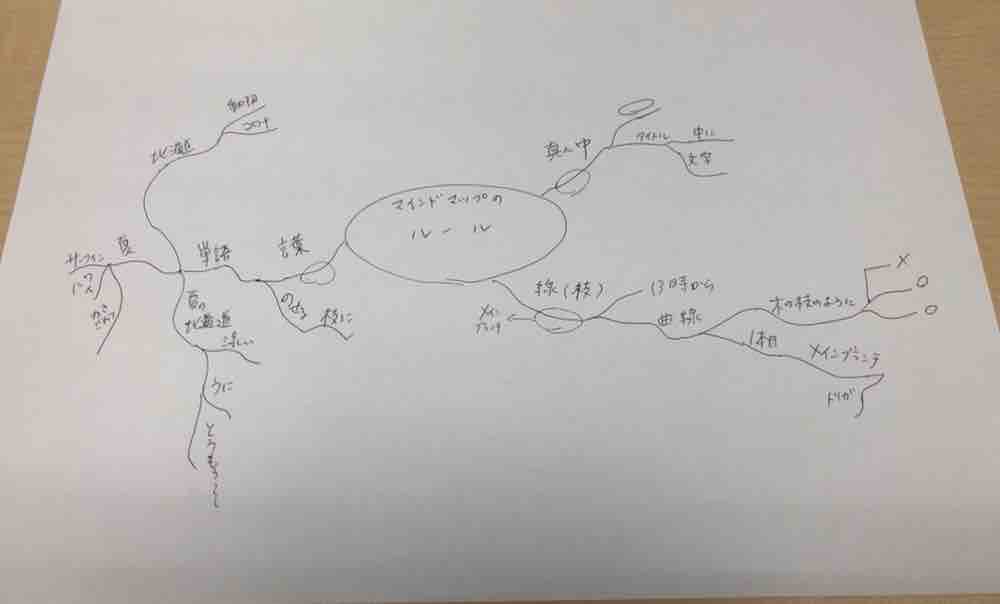 マインドマップの
ルール
真ん中
タイトル
中に
文字
線(枝)
メイン
ブランチ
13時から
曲線
木の枝のように
×
○
○
1本目
メインブランチ
トリガ
言葉
のせる
枝に
単語
北海道
コロナ
夏
サーフィン
夏の
北海道
涼しい
うに
とうもろこし